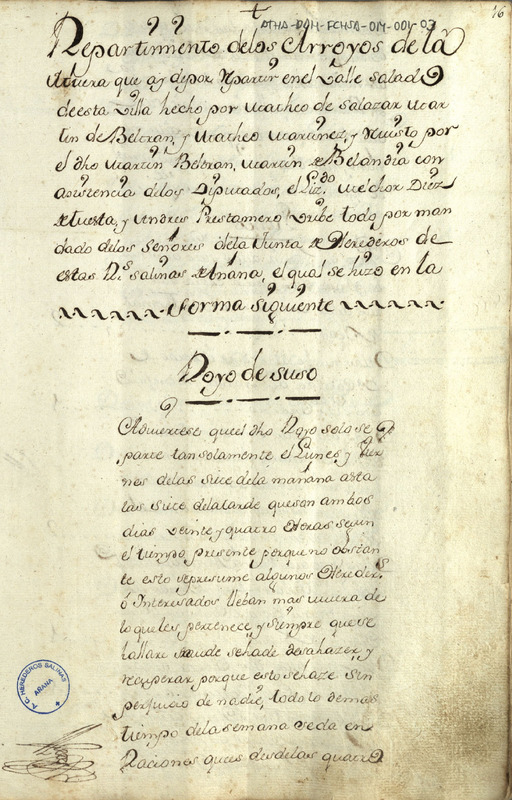 16
ATHA-DAH-FCHSA-014-001-03
Repartimiento delos Arroyos de la
Muera que ay depor Rpartir enel Valle salado
deesta Villa hecho por Matheo de salazar Mar
tin de Beltran, y Matheo Martinez, y Visto por
el dho Martin Beltran, Martin de Belandia con
asistencia delos Diputados, el Lizdo Melchor Diez
de Tuesta, y Andres Prestamero Uribe todo por man
dado delos Señores dela Junta de Herederos de
estas Rs salinas de Anana, el qual se hizo en la
forma siguiente
Royo de suso
Adviertese queel dho Royo solo se
parte tan solamente el Lunes y Jue
nes delas siete dela mañana asta
las siete delatarde queson ambos
dias veinte y quatro Horas segun
el tiempo presente porque no obstan
te esto sepresume algunos Hereders
ó Interesados lleban mas muera de
lo queles pertenece, y siempre que se
hallare fraude sehade desahazer, y
recuperar porque esto sehaze sin
perjuicio de nadie, todo lo demas
tiempo dela semana seda en
Raciones quees desdelas quatro
A. C. HEREDEROS SALINAS
AÑANA